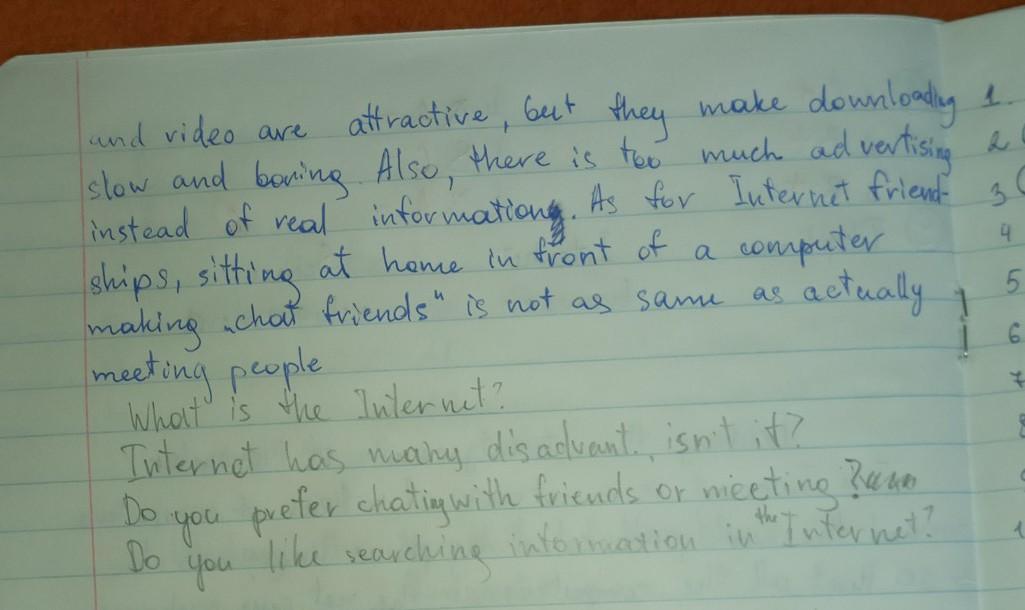 and video are attractive, but they make downloading
slow and boring. Also, there is too much advertising
instead of real information. As for Internet friend-
ships, sitting at home in front of a computer
making „chat friends" is not as same as actually
meeting people
What is the Internet?
Internet has many disadvant., isn't it?
Do you prefer chating with friends or meeting ?
Do you like searching information in the Internet?
1.
2
3
4
5
6
7
8